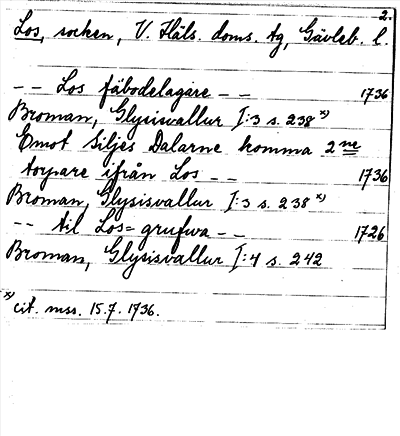 2.
Los, socken, V. Häls. doms. tg, Gävleb. l.
-- Los fäbodelagare -- 1736
Broman, Glysisvallur I:3 s. 238 x)
Emot Siljes Dalarne komma 2ne
torpare ifrån Los -- 1736
Broman, Glysisvallur I:3 s. 238 x)
-- til Los=grufwa -- 1726
Broman, Glysisvallur I:4 s. 242
x) cit. mss. 15.7.1736.